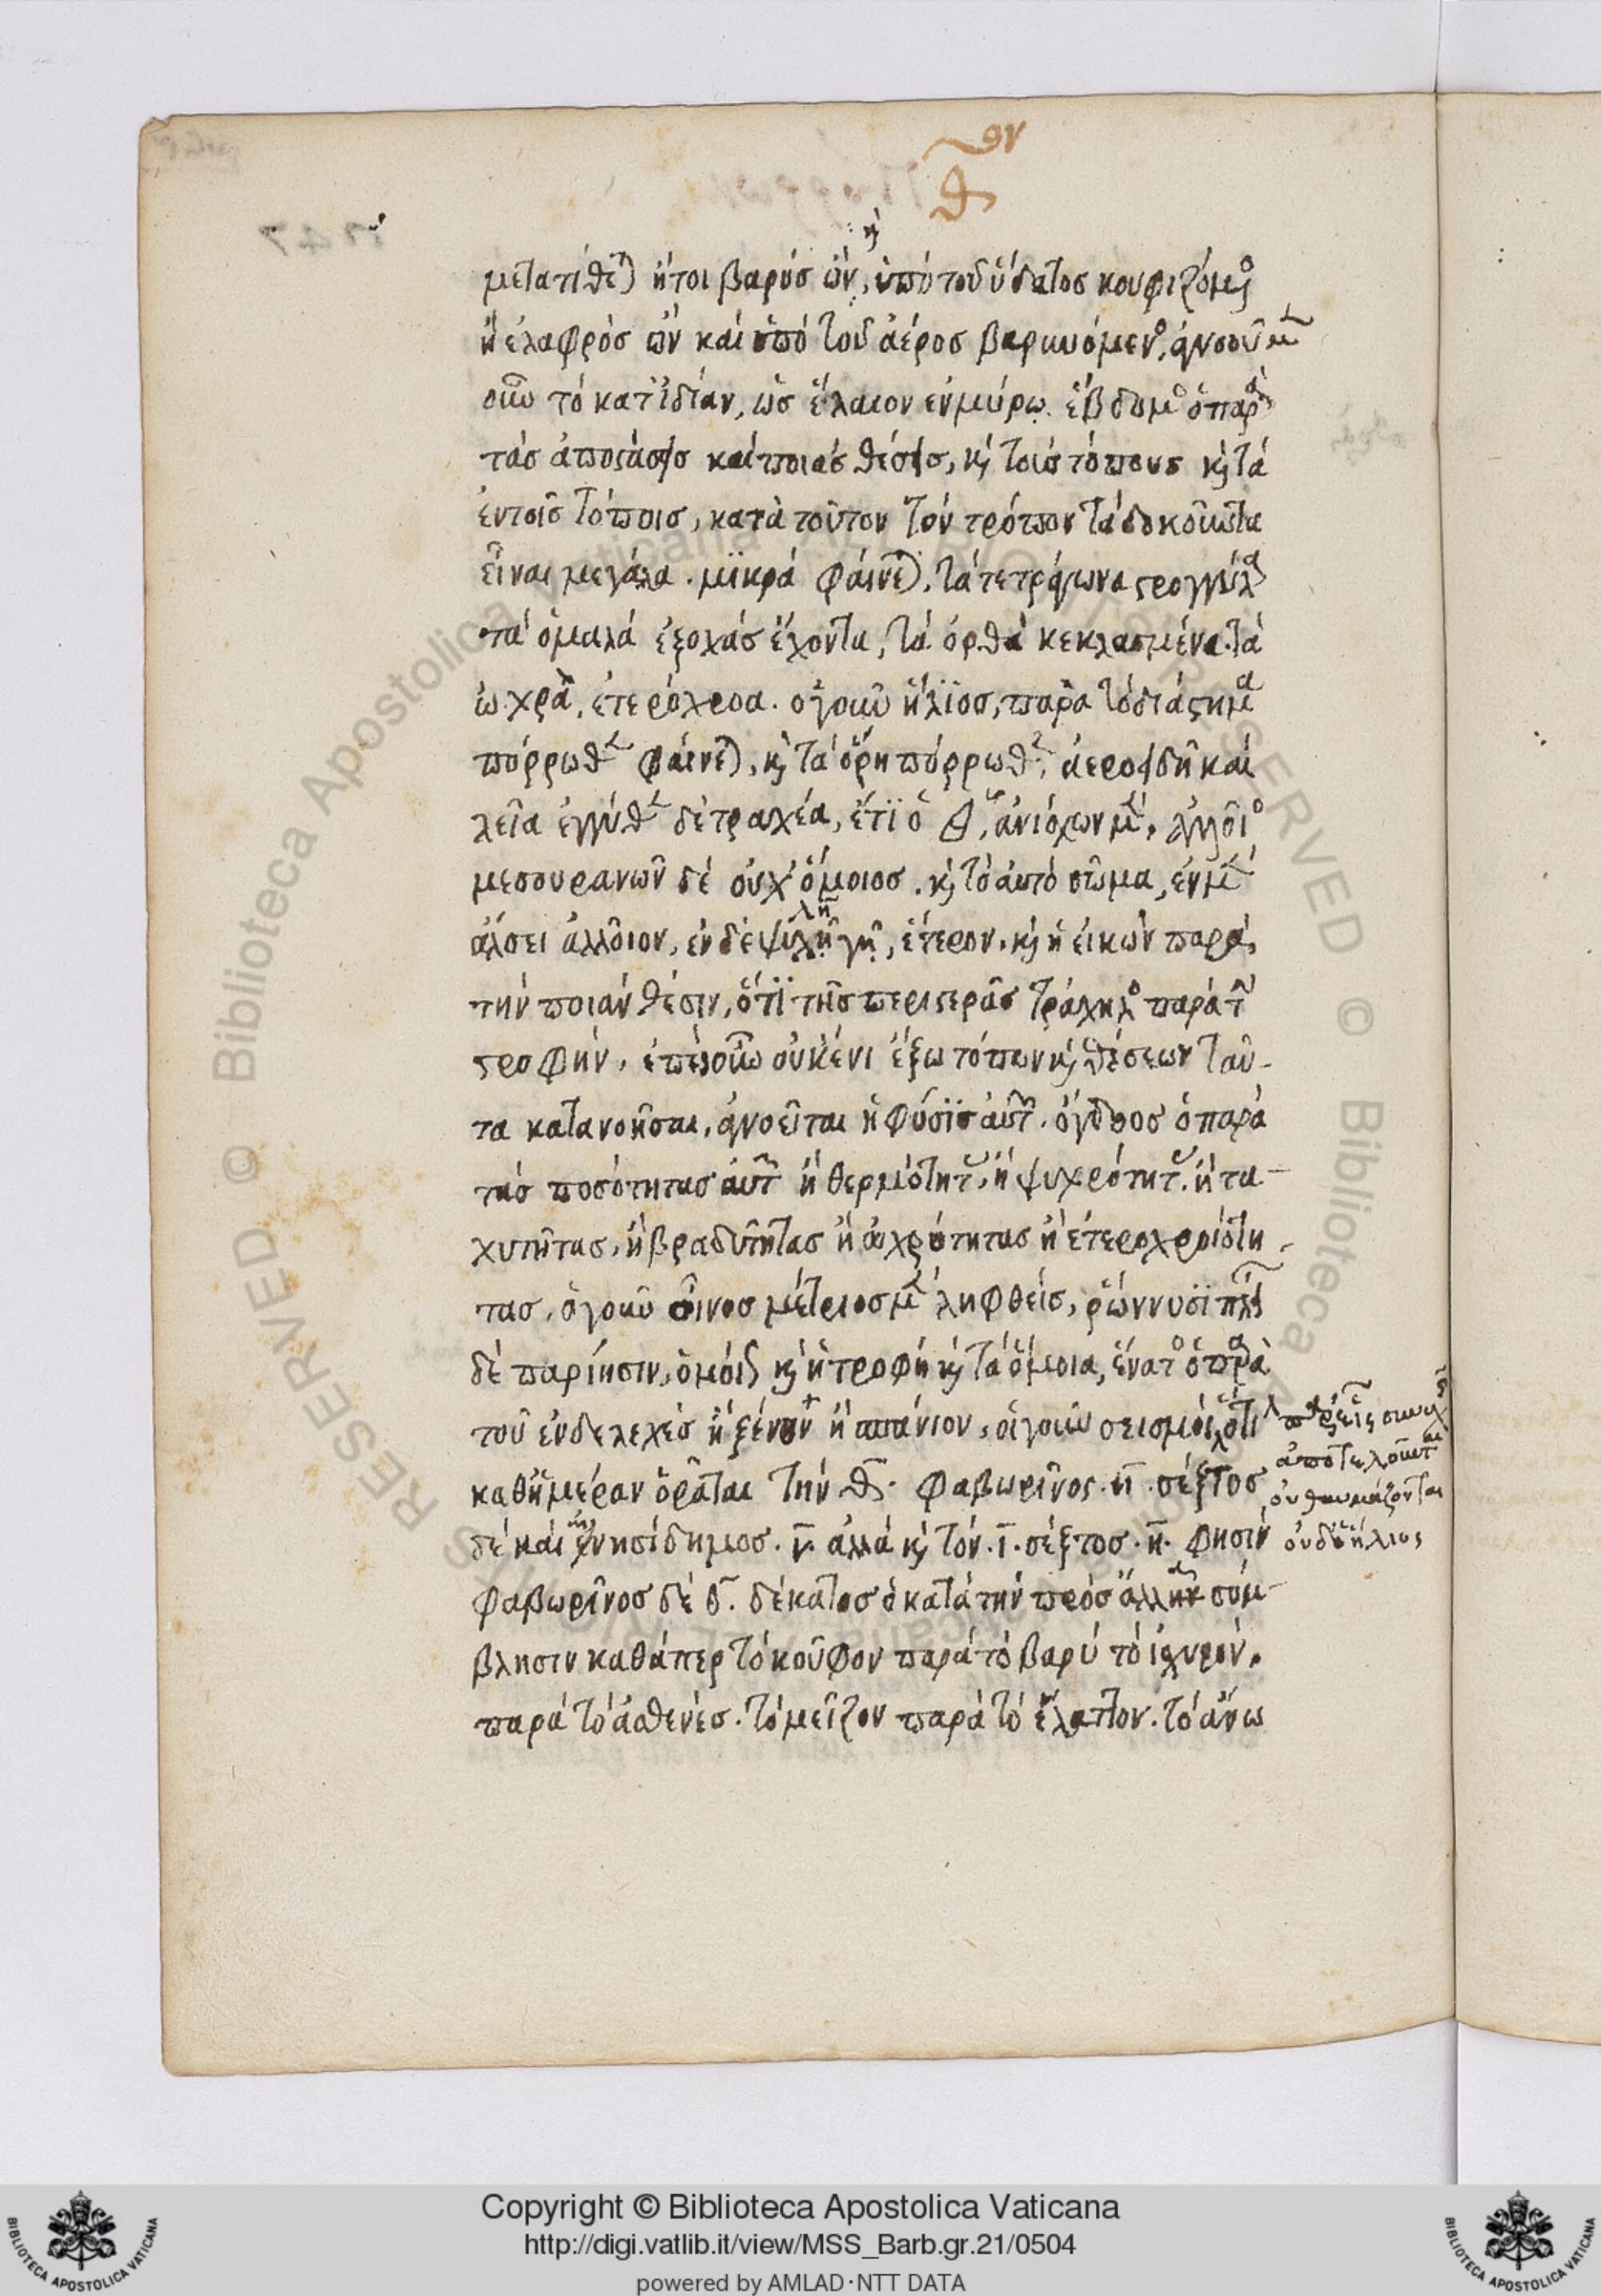 θον
μετατίθεται ἤτοι βαρὺς ὢν, καὶ ὑπὸ τοῦ ὕδατος κουφιζόμενος
ἢ ἐλαφρὸς ὢν καὶ ὑπὸ τοῦ ἀέρος βαρυνόμενος, ἀγνοοῦμεν
οὖν τὸ κατ' ἰδίαν, ὡς ἔλαιον ἐν μύρῳ. ἕβδομος ὁ παρὰ
τὰς ἀποστάσεις καὶ ποιὰς θέσεις, καὶ τοὺς τόπους καὶ τὰ
ἐν τοῖς τόποις, κατὰ τοῦτον τὸν τρόπον τὰ δοκοῦντα
εἶναι μεγάλα. μϊκρὰ φαίνεται, τὰ τετράγωνα στρογγύλα
τὰ ὁμαλὰ ἐξοχὰς ἔχοντα, τὰ ὀρθὰ κεκλασμένα. τὰ
ὠχρὰ, ἑτερόχροα. ὁ γοῦν ἥλϊος, παρὰ τὸ διάστημα
πόρρωθεν φαίνεται, καὶ τὰ ὄρη πόρρωθεν, ἀεροειδῆ καὶ
λεῖα ἐγγύθεν δὲ τραχέα, ἔτϊ ὁ ἥλιος, ἀνίσχων μὲν, ἀλλοῖος
μεσουρανῶν δὲ οὐχ' ὅμοιος. καὶ τὸ αὐτὸ σῶμα, ἐν μὲν
ἄλσει ἀλλοῖον, ἐν δὲ ψιλῇ γῇ, ἕτερον. καὶ ἡ εἰκὼν παρὰ,
τὴν ποιὰν θέσιν, ὅ τϊ τῆς περιστερᾶς τράχηλος παρὰ τὴν
στροφήν. ἐπεὶ οὖν οὐκ ἔνι ἔξω τόπων καὶ θέσεων ταῦ-
τα κατανοῆσαι, ἀγνοεῖται ἡ φύσϊς αὐτῶν. ὄγδοος ὁ παρὰ
τὰς ποσότητας αὐτῶν ἢ θερμότητας, ἢ ψυχρότητας. ἢ τα-
χυτῆτας, ἢ βραδυτῆτας ἢ ὠχρότητας ἢ ἑτεροχροιότη-
τας. ὁ γοῦν οἶνος μέτριος μὲν ληφθεὶς, ῥώννυσϊ πλείων
δὲ παρίησιν, ὁμοίως καὶ ἡ τροφὴ καὶ τὰ ὅμοια, ἔνατος ὁ παρὰ
τοῦ ἐνδελεχὲς ἢ ξένον ἢ σπάνιον. οἱ γοῦν σεισμοὶ ὅτι
παρ' οἷς συνεχῶς
ἀποτελοῦνται
οὐ θαυμάζονται
οὐδ' ὁ ἥλιος
καθ' ἡμέραν ὁρᾶται τὴν θ. Φαβωρῖνος. η. σέξτος
δὲ καὶ αἰνησίδημος. ι. ἀλλὰ καὶ τὸν. ι. σέξτος. η. φησὶν
Φαβωρῖνος δὲ θ. δέκατος ὁ κατὰ τὴν πρὸς ἄλληλα σύμ-
βλησιν καθάπερ τὸ κοῦφον παρὰ τὸ βαρὺ τὸ ἰσχυρὸν.
παρὰ τὸ ἀσθενὲς. τὸ μεῖζον παρὰ τὸ ἔλαττον. τὸ ἄνω
Copyright © Biblioteca Apostolica Vaticana
http://digi.vatlib.it/view/MSS_Barb.gr.21/0504
powered by AMLAD·NTT DATA